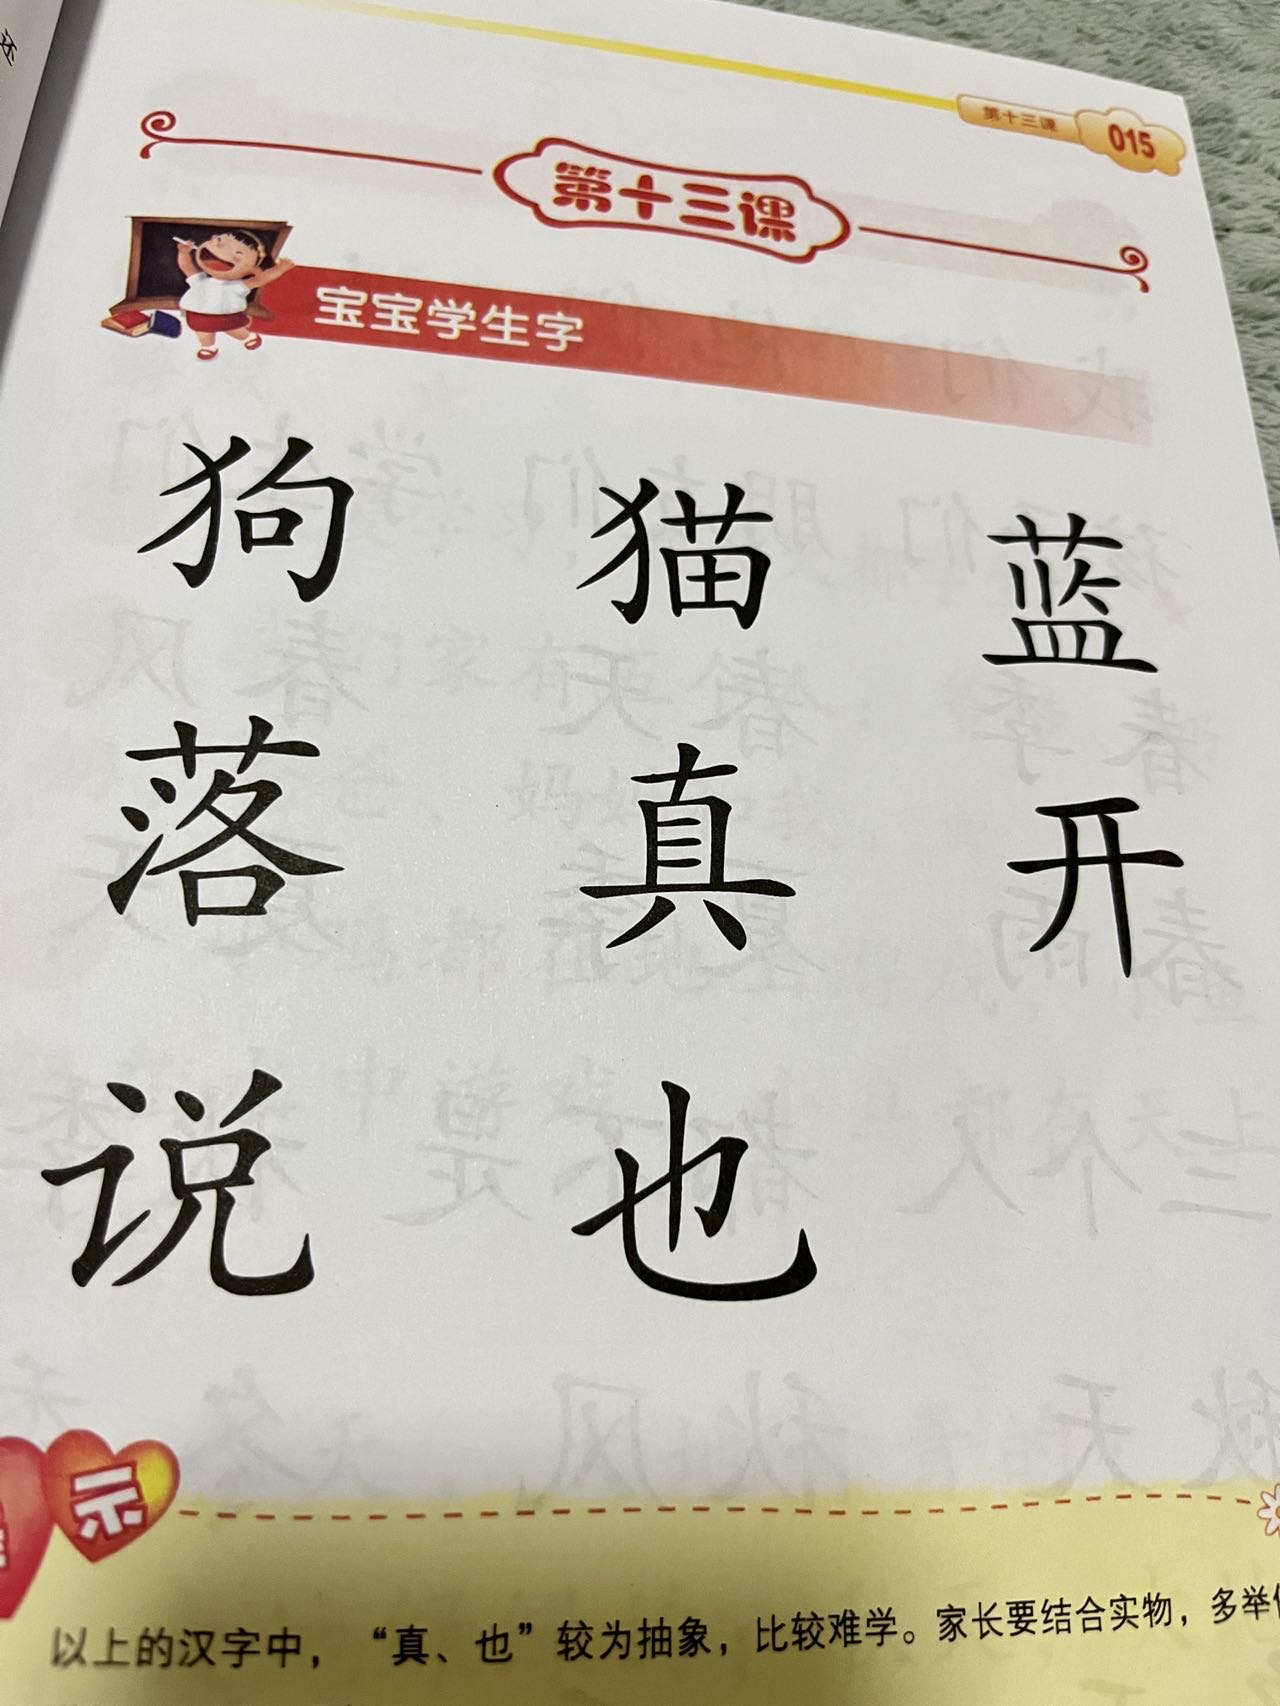 还
第十三课 015
第十三课
宝宝学生字
狗 猫 蓝
落 真 开
说 也
示
以上的汉字中，“真、也”较为抽象，比较难学。家长要结合实物，多举